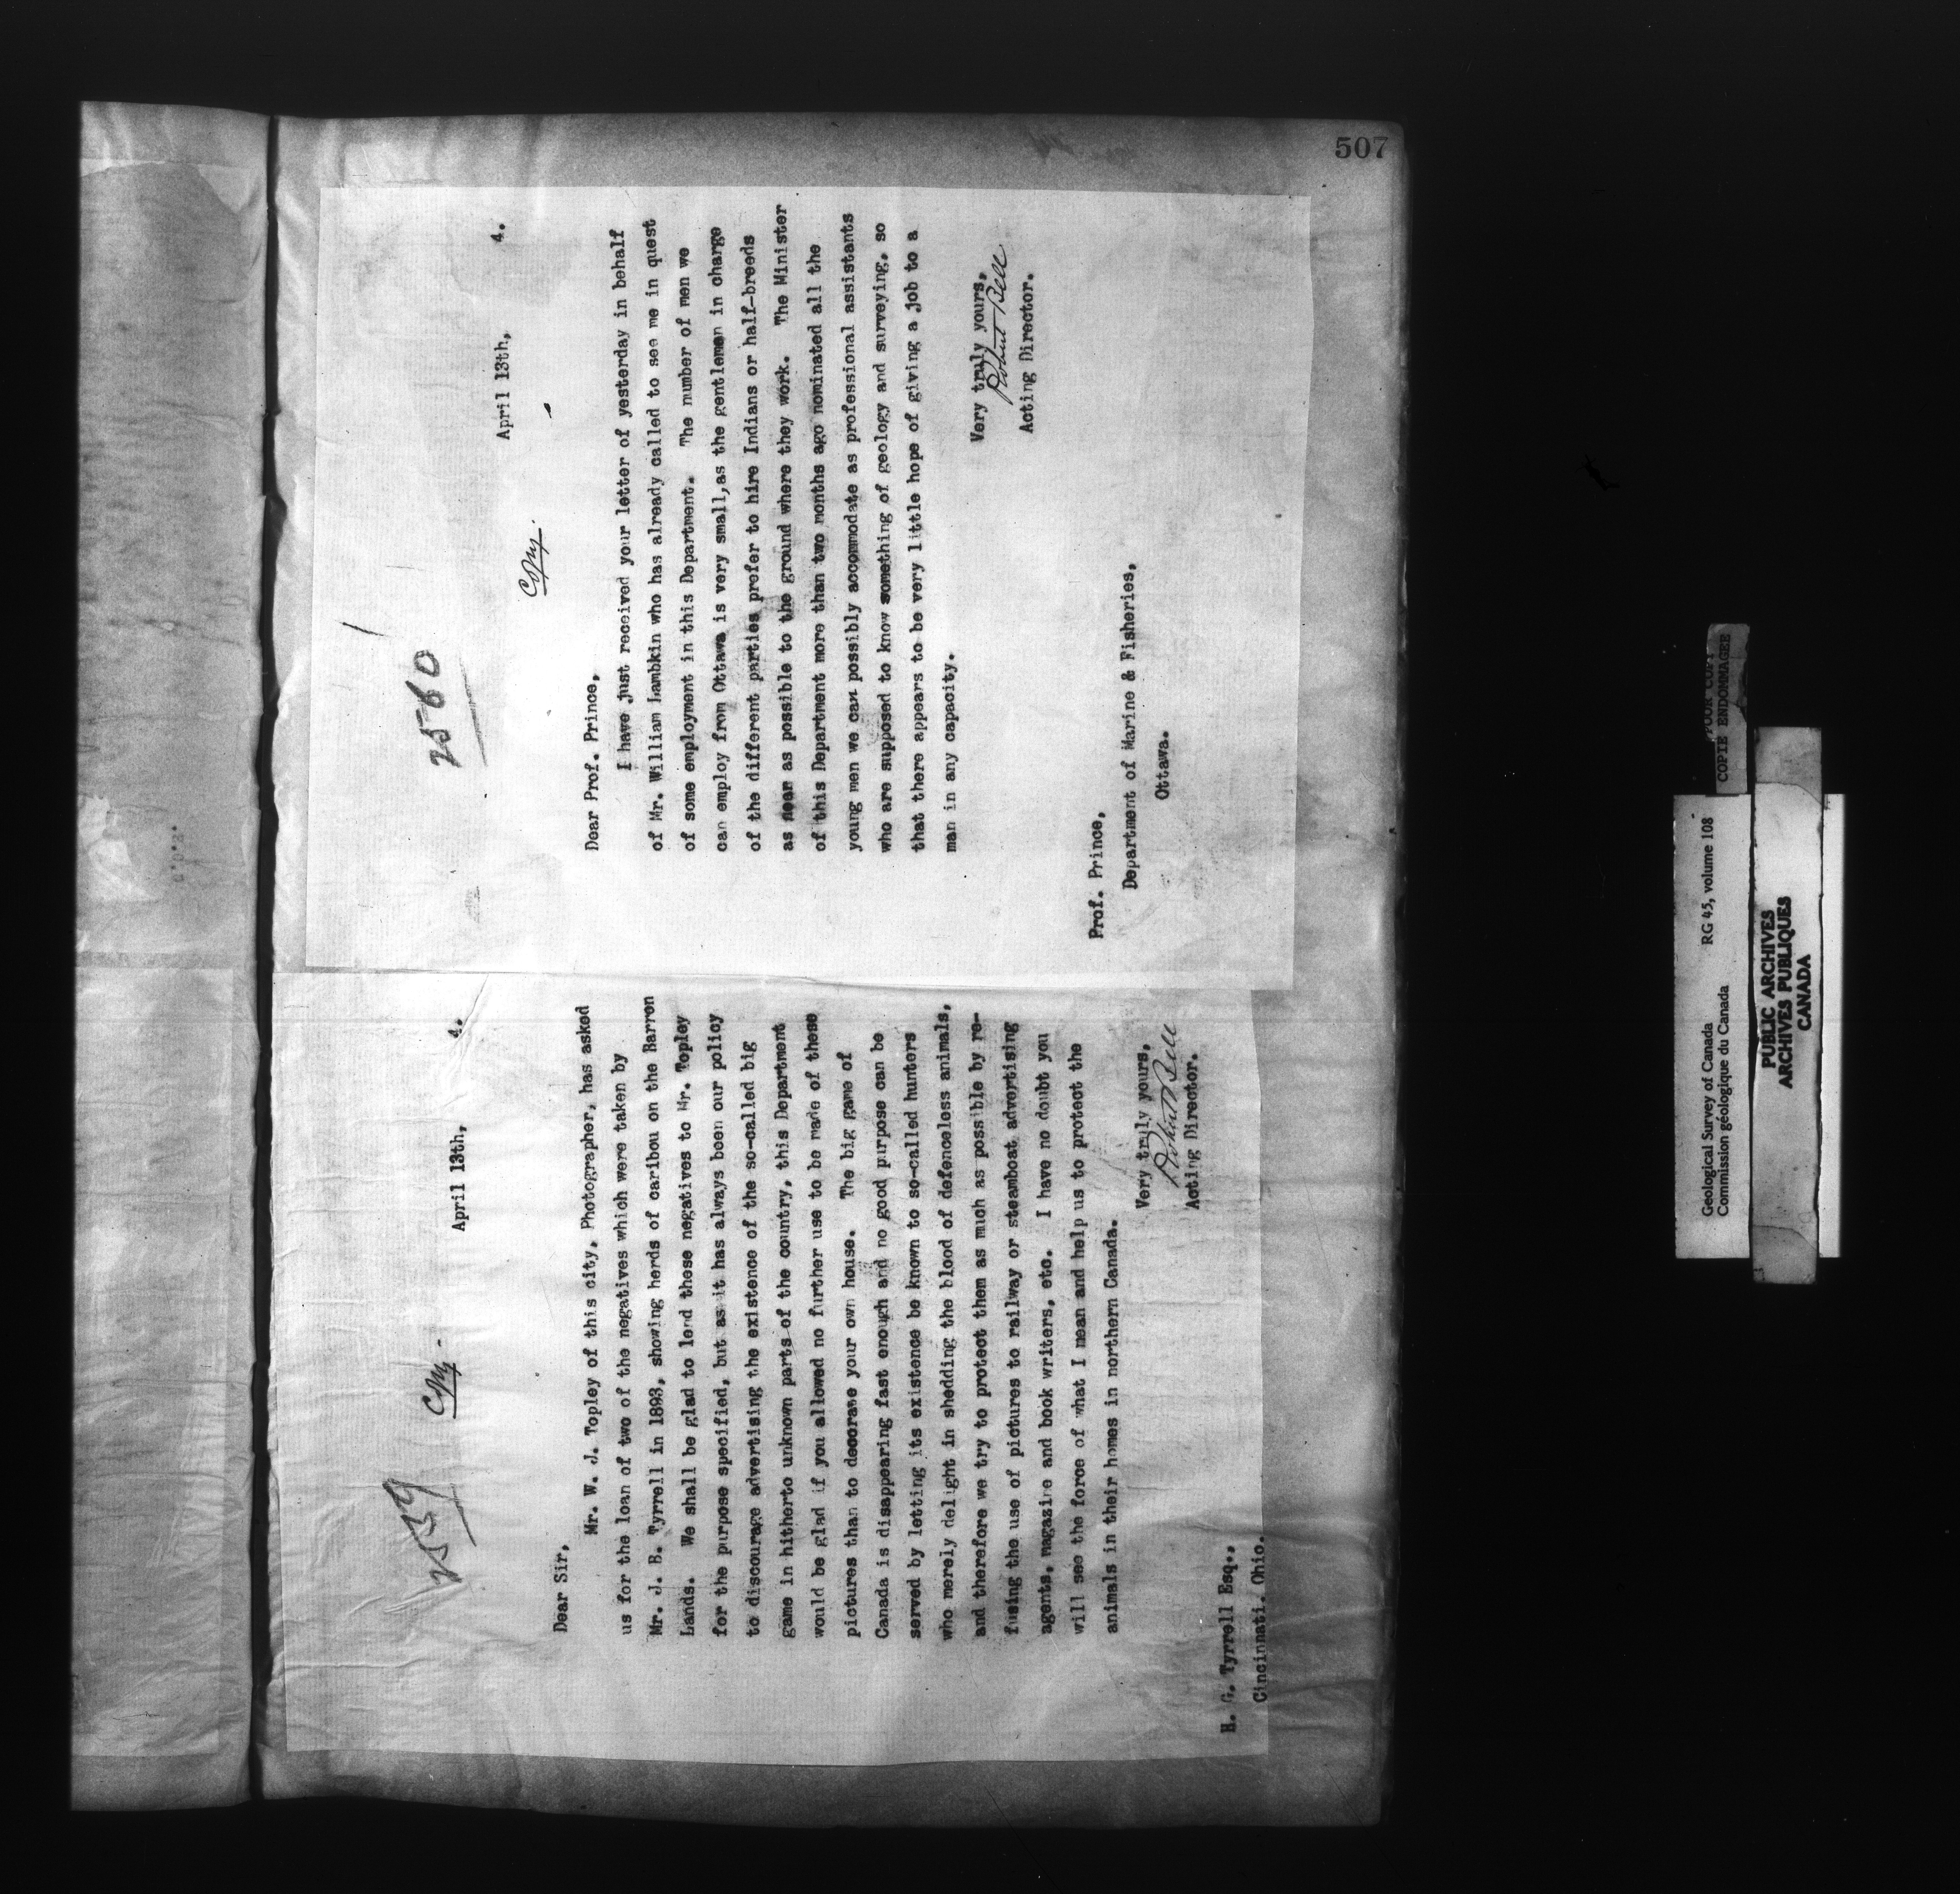 507
2539
Copy -
April 13th, 4.
Dear Sir,
Mr. W. J. Topley of this city, Photographer, has asked
us for the loan of two of the negatives which were taken by
Mr. J. B. Tyrrell in 1893, showing herds of caribou on the Barren
Lands. We shall be glad to lend these negatives to Mr. Topley
for the purpose specified, but as it has always been our policy
to discourage advertising the existence of the so-called big
game in hitherto unknown parts of the country, this Department
would be glad if you allowed no further use to be made of these
pictures than to decorate your own house. The big game of
Canada is disappearing fast enough and no good purpose can be
served by letting its existence be known to so-called hunters
who merely delight in shedding the blood of defenceless animals,
and therefore we try to protect them as much as possible by re-
fusing the use of pictures to railway or steamboat advertising
agents, magazine and book writers, etc. I have no doubt you
will see the force of what I mean and help us to protect the
animals in their homes in northern Canada.
Very truly yours,
Robert Bell
Acting Director.
H. G. Tyrrell Esq.,
Cincinnati. Ohio.
2560
Copy.
April 13th, 4.
Dear Prof. Prince,
I have just received your letter of yesterday in behalf
of Mr. William Lambkin who has already called to see me in quest
of some employment in this Department. The number of men we
can employ from Ottawa is very small,as the gentlemen in charge
of the different parties prefer to hire Indians or half-breeds
as near as possible to the ground where they work. The Minister
of this Department more than two months ago nominated all the
young men we can possibly accommodate as professional assistants
who are supposed to know something of geology and surveying, so
that there appears to be very little hope of giving a job to a
man in any capacity.
Very truly yours,
Robert Bell
Acting Director.
Prof. Prince,
Department of Marine & Fisheries,
Ottawa.
Geological Survey of Canada RG 45, volume 108
Commission géologique du Canada
POOR COPY
COPIE ENDOMMAGEE
PUBLIC ARCHIVES
ARCHIVES PUBLIQUES
CANADA